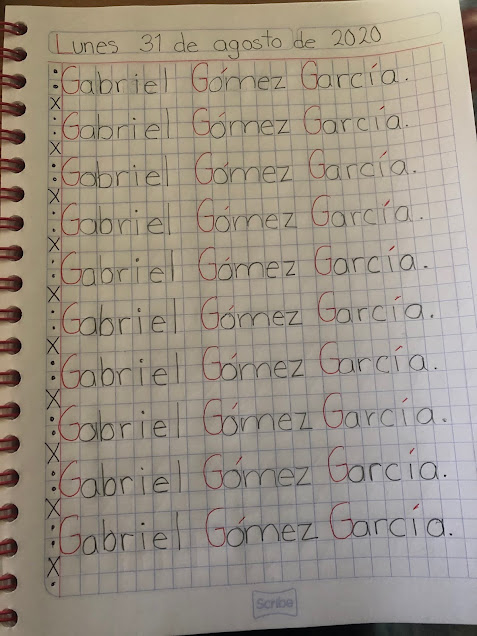 Lunes 31 de agosto de 2020
Gabriel Gómez García.
Gabriel Gómez García.
Gabriel Gómez García.
Gabriel Gómez García.
Gabriel Gómez García.
Gabriel Gómez García.
Gabriel Gómez García.
Gabriel Gómez García.
Gabriel Gómez García.
Gabriel Gómez García.
Scribe